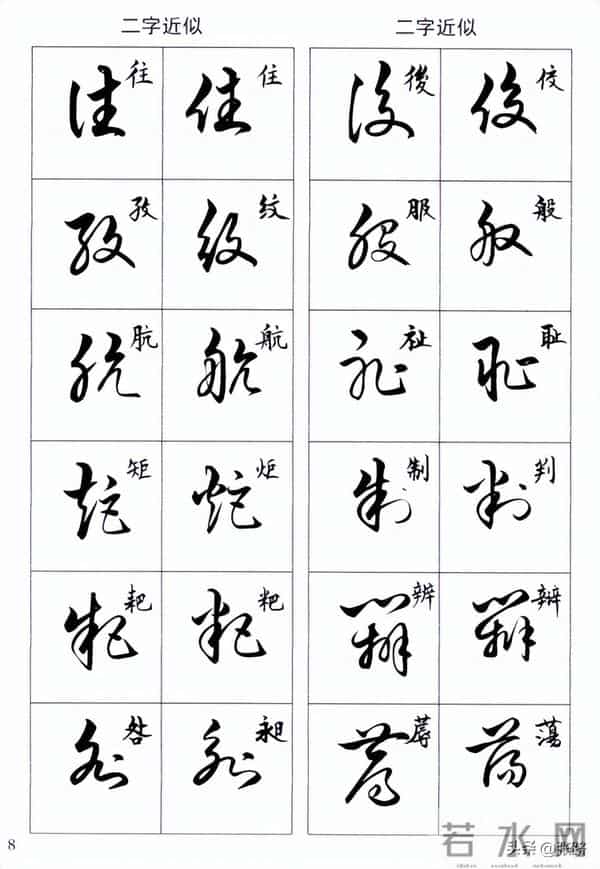 二字近似 二字近似
往 住 後 佼
孜 纹 服 般
肮 航 祉 耻
矩 炬 制 判
耙 粑 辨
咎 昶 蓐 蕩
8
若水网
头条@